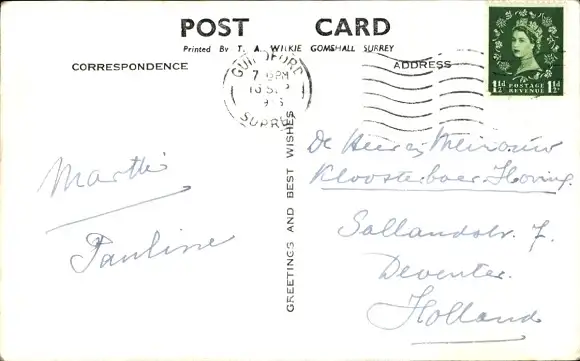 POST CARD
Printed By T. A. WILKIE GOMSHALL SURREY
CORRESPONDENCE
ADDRESS
GUILDFORD
7 PM
SURREY
POSTAGE
REVENUE
1½d 1½d
GREETINGS AND BEST WISHES
Marthi
Pauline
De Heer en Mevrouw
Kloosterboer Hoving.
Sallandstr. 7.
Deventer.
Holland